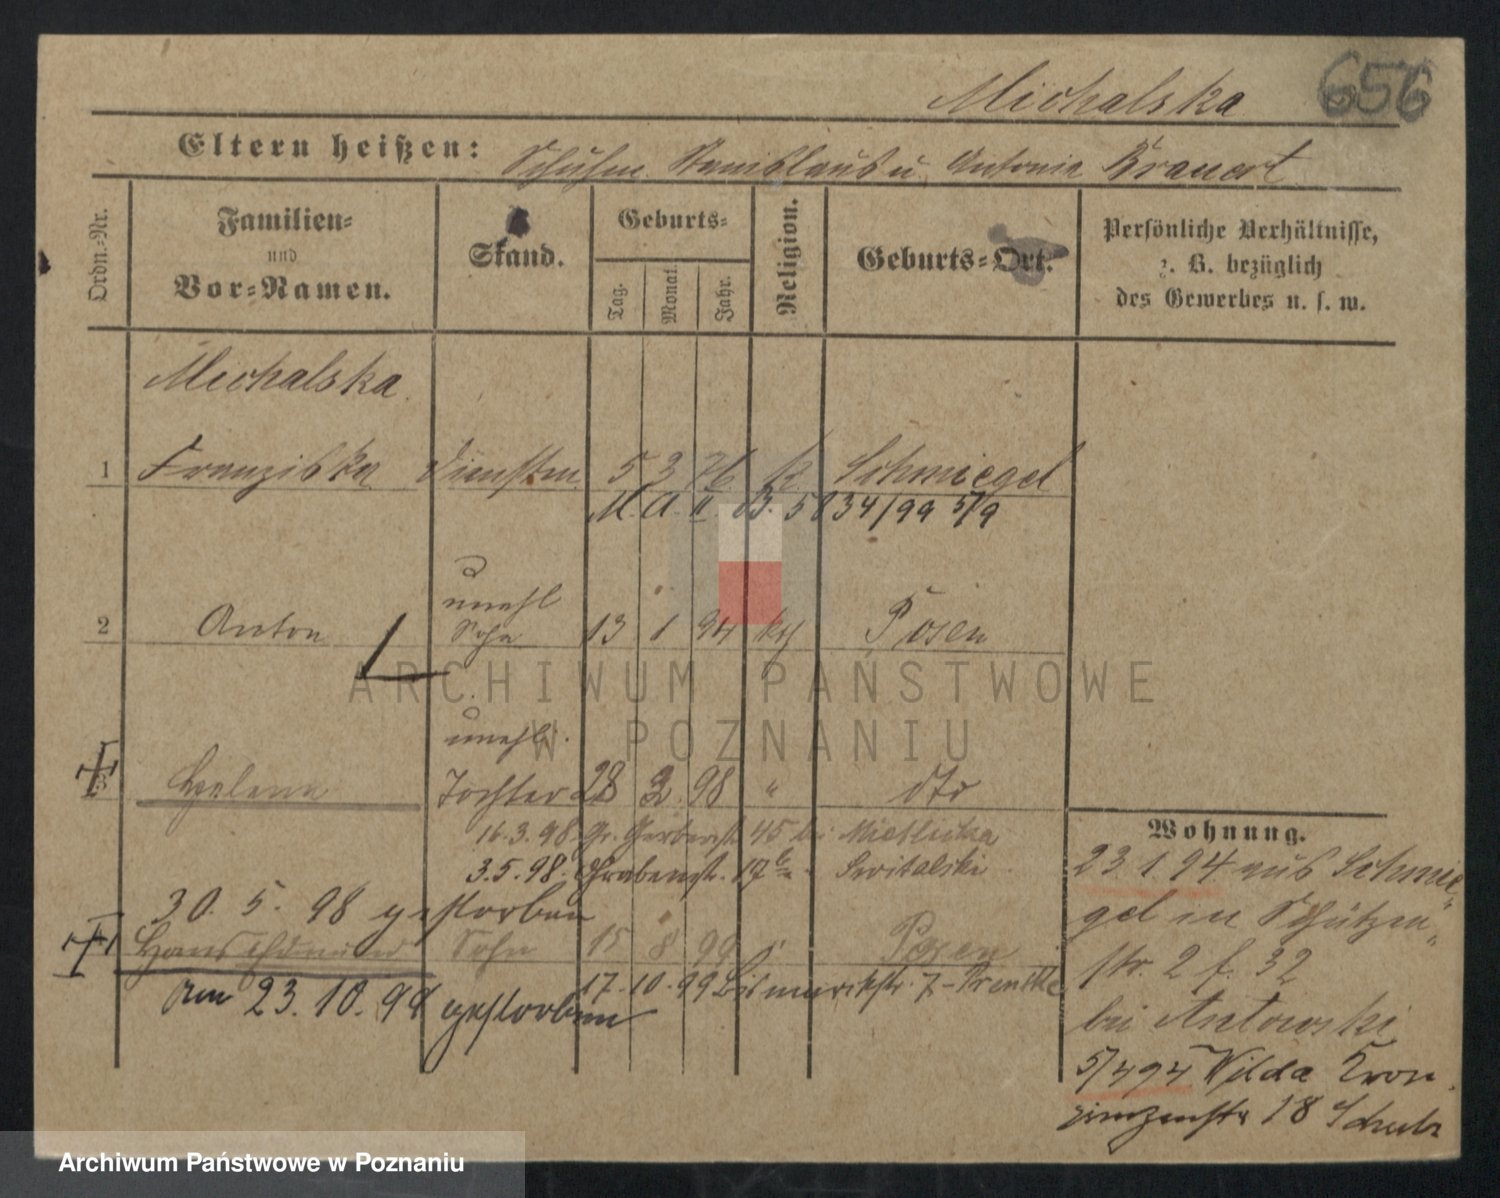 Michalska 656
Eltern heißen: Schuhm. Stanislaus u. Antonie Brauert
Ordn.-Nr.
Familien-
und
Vor-Namen.
Stand.
Geburts-
Tag.
Monat.
Jahr.
Religion.
Geburts-Ort.
Persönliche Verhältnisse,
z. B. bezüglich
des Gewerbes u. s. w.
Michalska
1 Franziska Dienstm 5 3 76 k Schmiegel
M. A. II B. 5834/99 5/9
unehl
2 Anton Sohn 13 1 94 kth Posen
unehl.
3 Helene Tochter 28 2 98 " dto
16.3.98. Gr. Gerberstr. 45 bei
3.5.98. Grabenstr. 17 Switalski
30. 5. 98 gestorben
Hans Edmund Sohn 15 8 99 Posen
17.10.99 Bismarckstr. 7-
Am 23.10.99 gestorben
Wohnung.
23.1.94 aus Schmie-
gel in Schützen-
str. 2 f. 32
bei Antowski
5/4 94 Wilda Kron-
prinzenstr 18 Schulz
ARCHIWUM PAŃSTWOWE
W POZNANIU
Archiwum Państwowe w Poznaniu